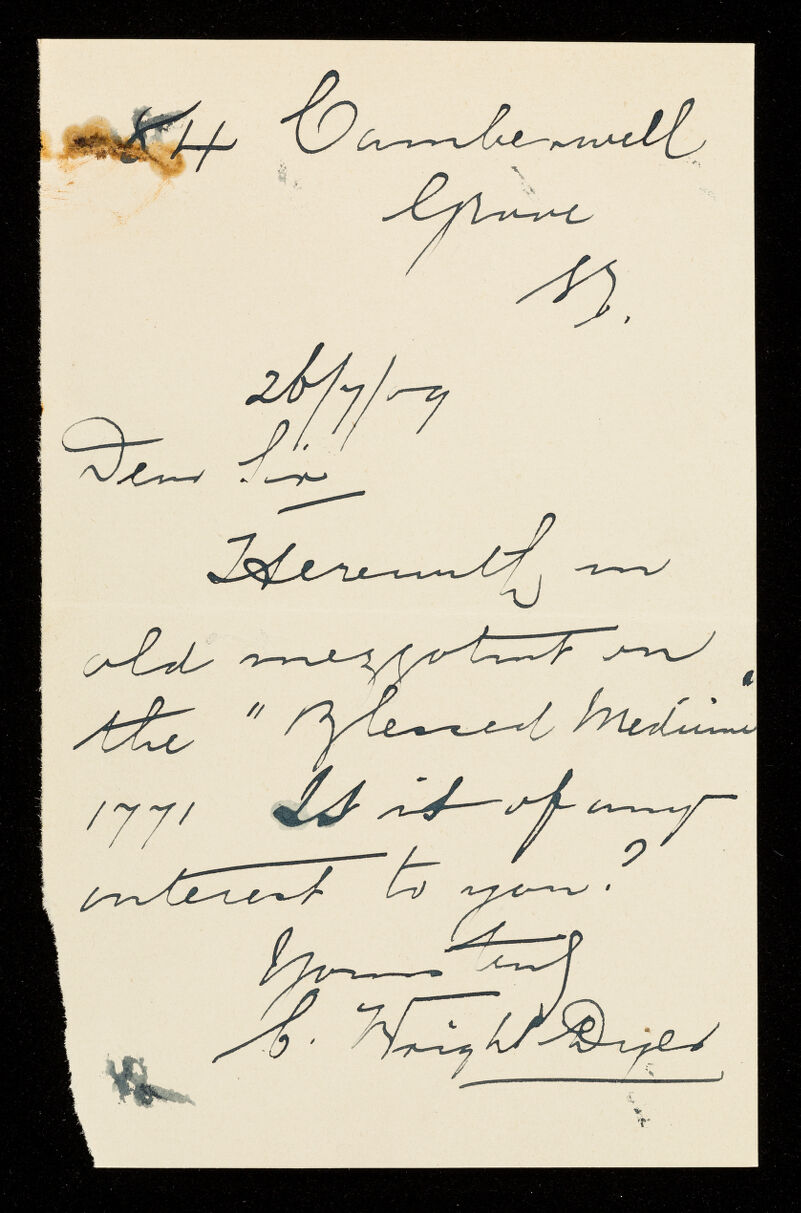 84 Camberwell
Grove
SE.
26/7/09
Dear Sir
Herewith an
old mezzotint on
the "Blessed Medicine"
1771 Is it of any
interest to you?
Yours truly
C. Wright Dyer